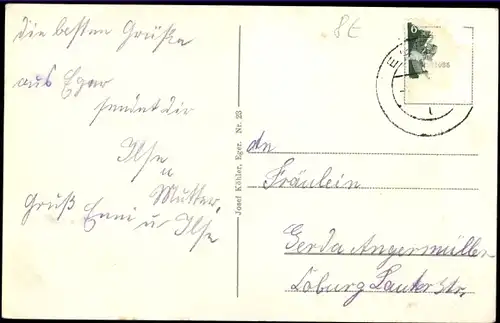 die besten Grüße
aus Eger
sendet dir
Ilse
u
Mutter,
Gruß Enni u Ilse
8€
Josef Köhler, Eger. Nr. 23
An
Fräulein
Gerda Angermüller
Coburg Lauter Str.
6